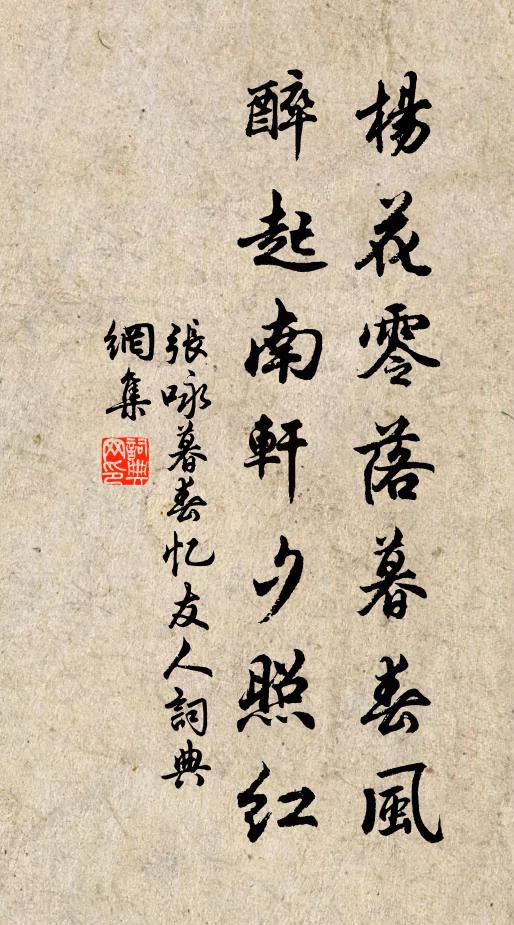 楊花零落暮春風
醉起南軒夕照紅
張咏暮春忆友人詞典
網集
詞典
网印